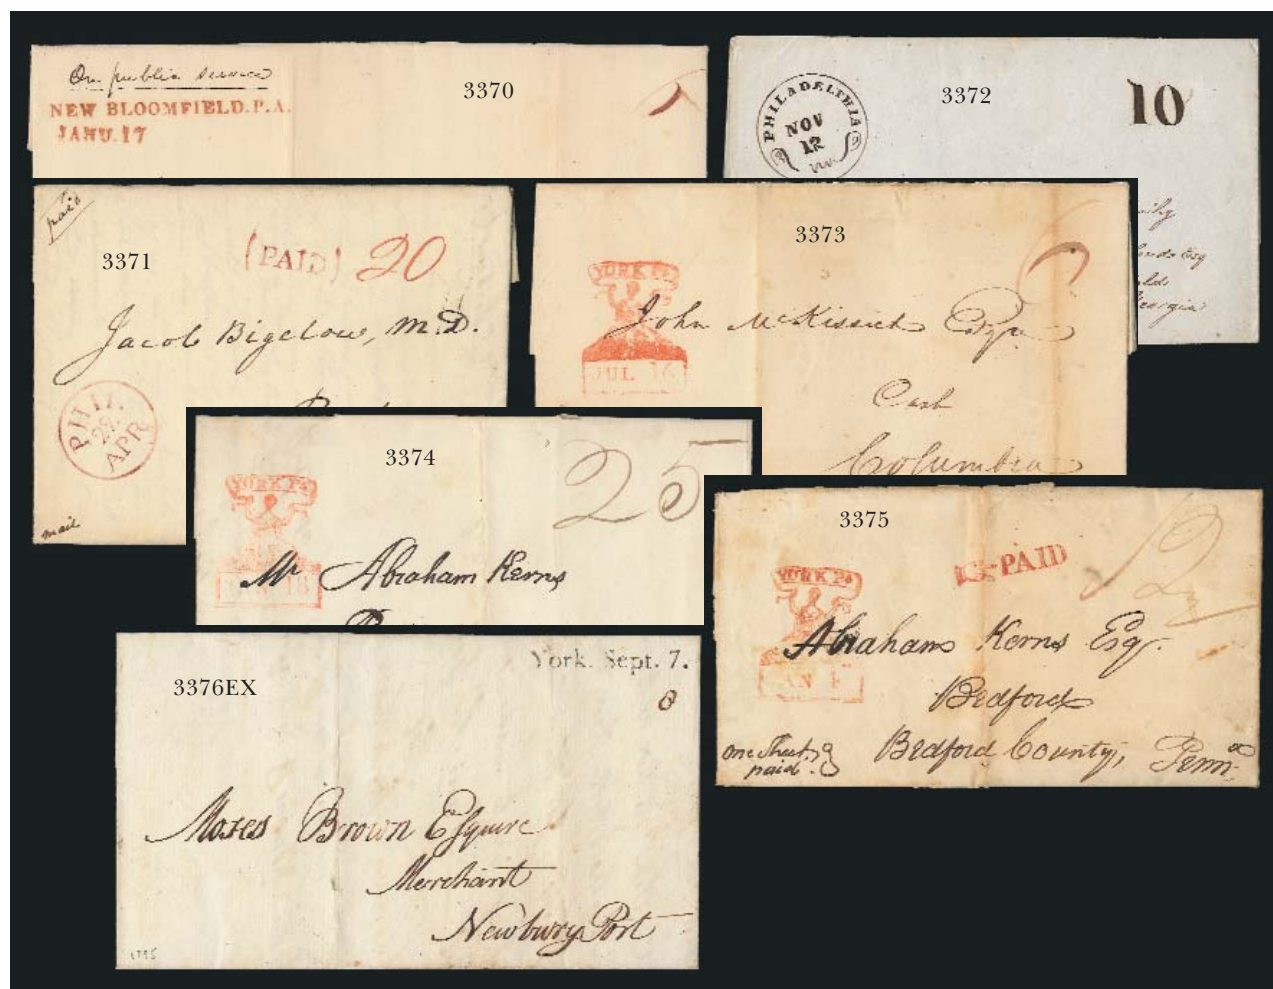 On public service
NEW BLOOMFIELD.P.A.
JANU.17
3370
PHILADELPHIA
NOV
12
3372
10
Esq
Georgia
paid
3371
(PAID) 20
Jacob Bigelow, M.D.
PHIL.
22
APR
mail
3373
YORK Pa
JUL 16
John McKissick Esqr
Cash
Columbia
3374
25
YORK Pa
18
Mr Abraham Kerns
3375
PAID
YORK Pa
Abraham Kerns Esqr.
Bedford
Bedford County, Penna
One Sheet
paid.
York. Sept. 7.
3376EX
8
Moses Brown Esquire
Merchant
Newbury Port
1795